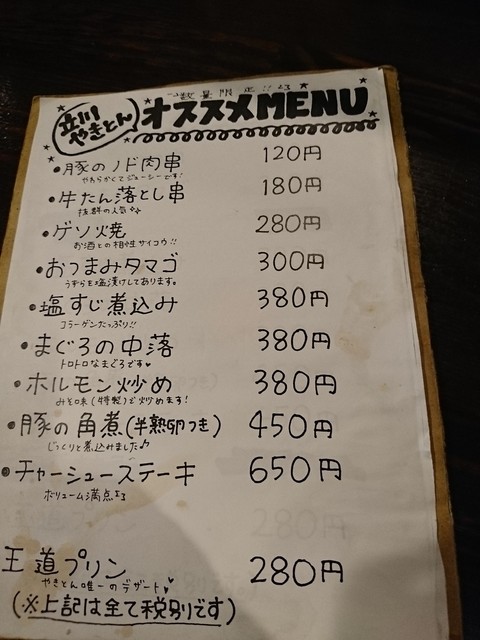 数量限定!!
立川
やきとん
オススメMENU
・豚のノド肉串 120円
やわらかくてジューシーです!
・牛たん落とし串 180円
抜群の人気
・ゲソ焼 280円
お酒との相性サイコウ!!
・おつまみタマゴ 300円
うずらを塩漬けしてあります。
・塩すじ煮込み 380円
コラーゲンたっぷり!!
・まぐろの中落 380円
トロトロなまぐろです♥
・ホルモン炒め 380円
みそ味(特製)で炒めます!
・豚の角煮(半熟卵つき) 450円
じっくりと煮込みました♪
・チャーシューステーキ 650円
ボリューム満点
王道プリン 280円
やきとん唯一のデザート♥
(※上記は全て税別です)